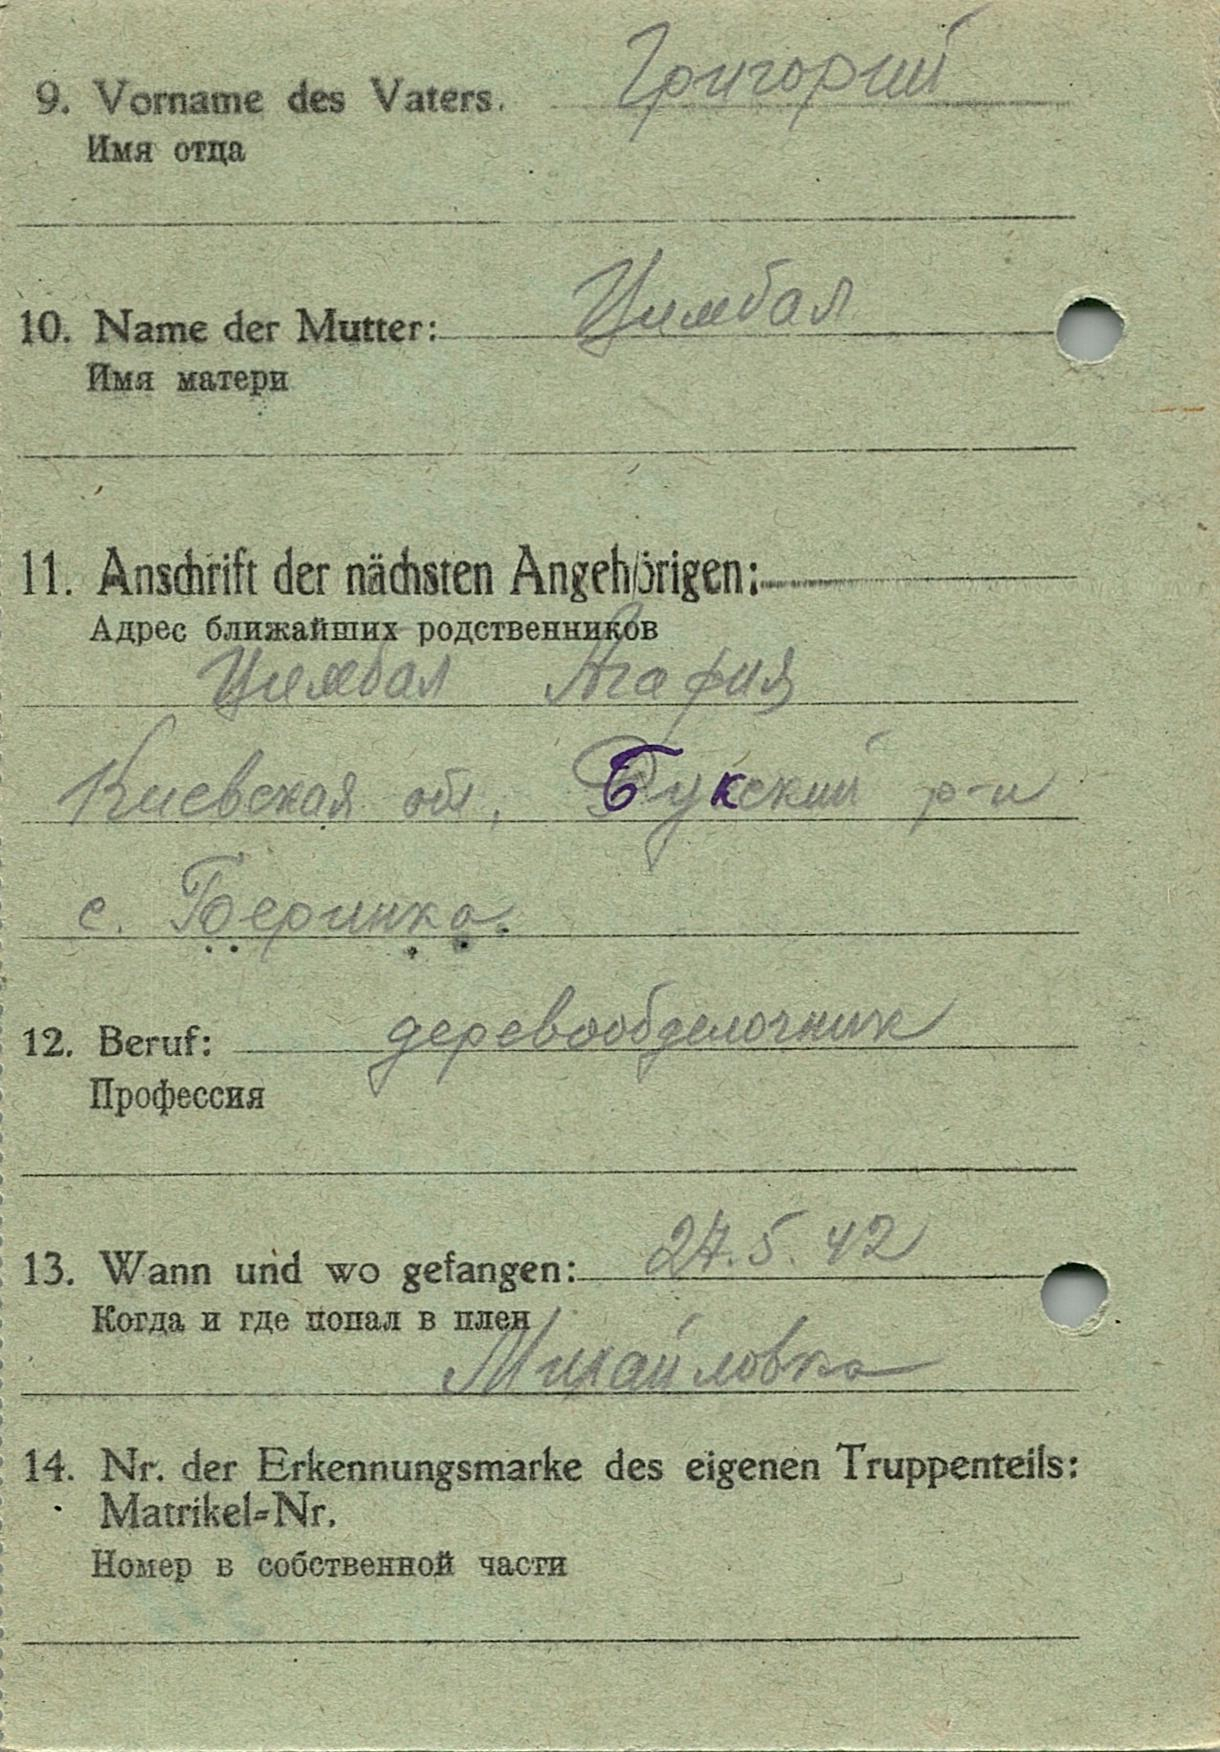 9. Vorname des Vaters. Григорий
Имя отца
10. Name der Mutter: Цимбал
Имя матери
11. Anschrift der nächsten Angehörigen:
Адрес ближайших родственников
Цимбал Агафия
Киевская обл, Букский р-н
с. Беринка.
12. Beruf: деревообделочник
Профессия
13. Wann und wo gefangen: 27.5.42
Когда и где попал в плен
Михайловка
14. Nr. der Erkennungsmarke des eigenen Truppenteils:
Matrikel-Nr.
Номер в собственной части